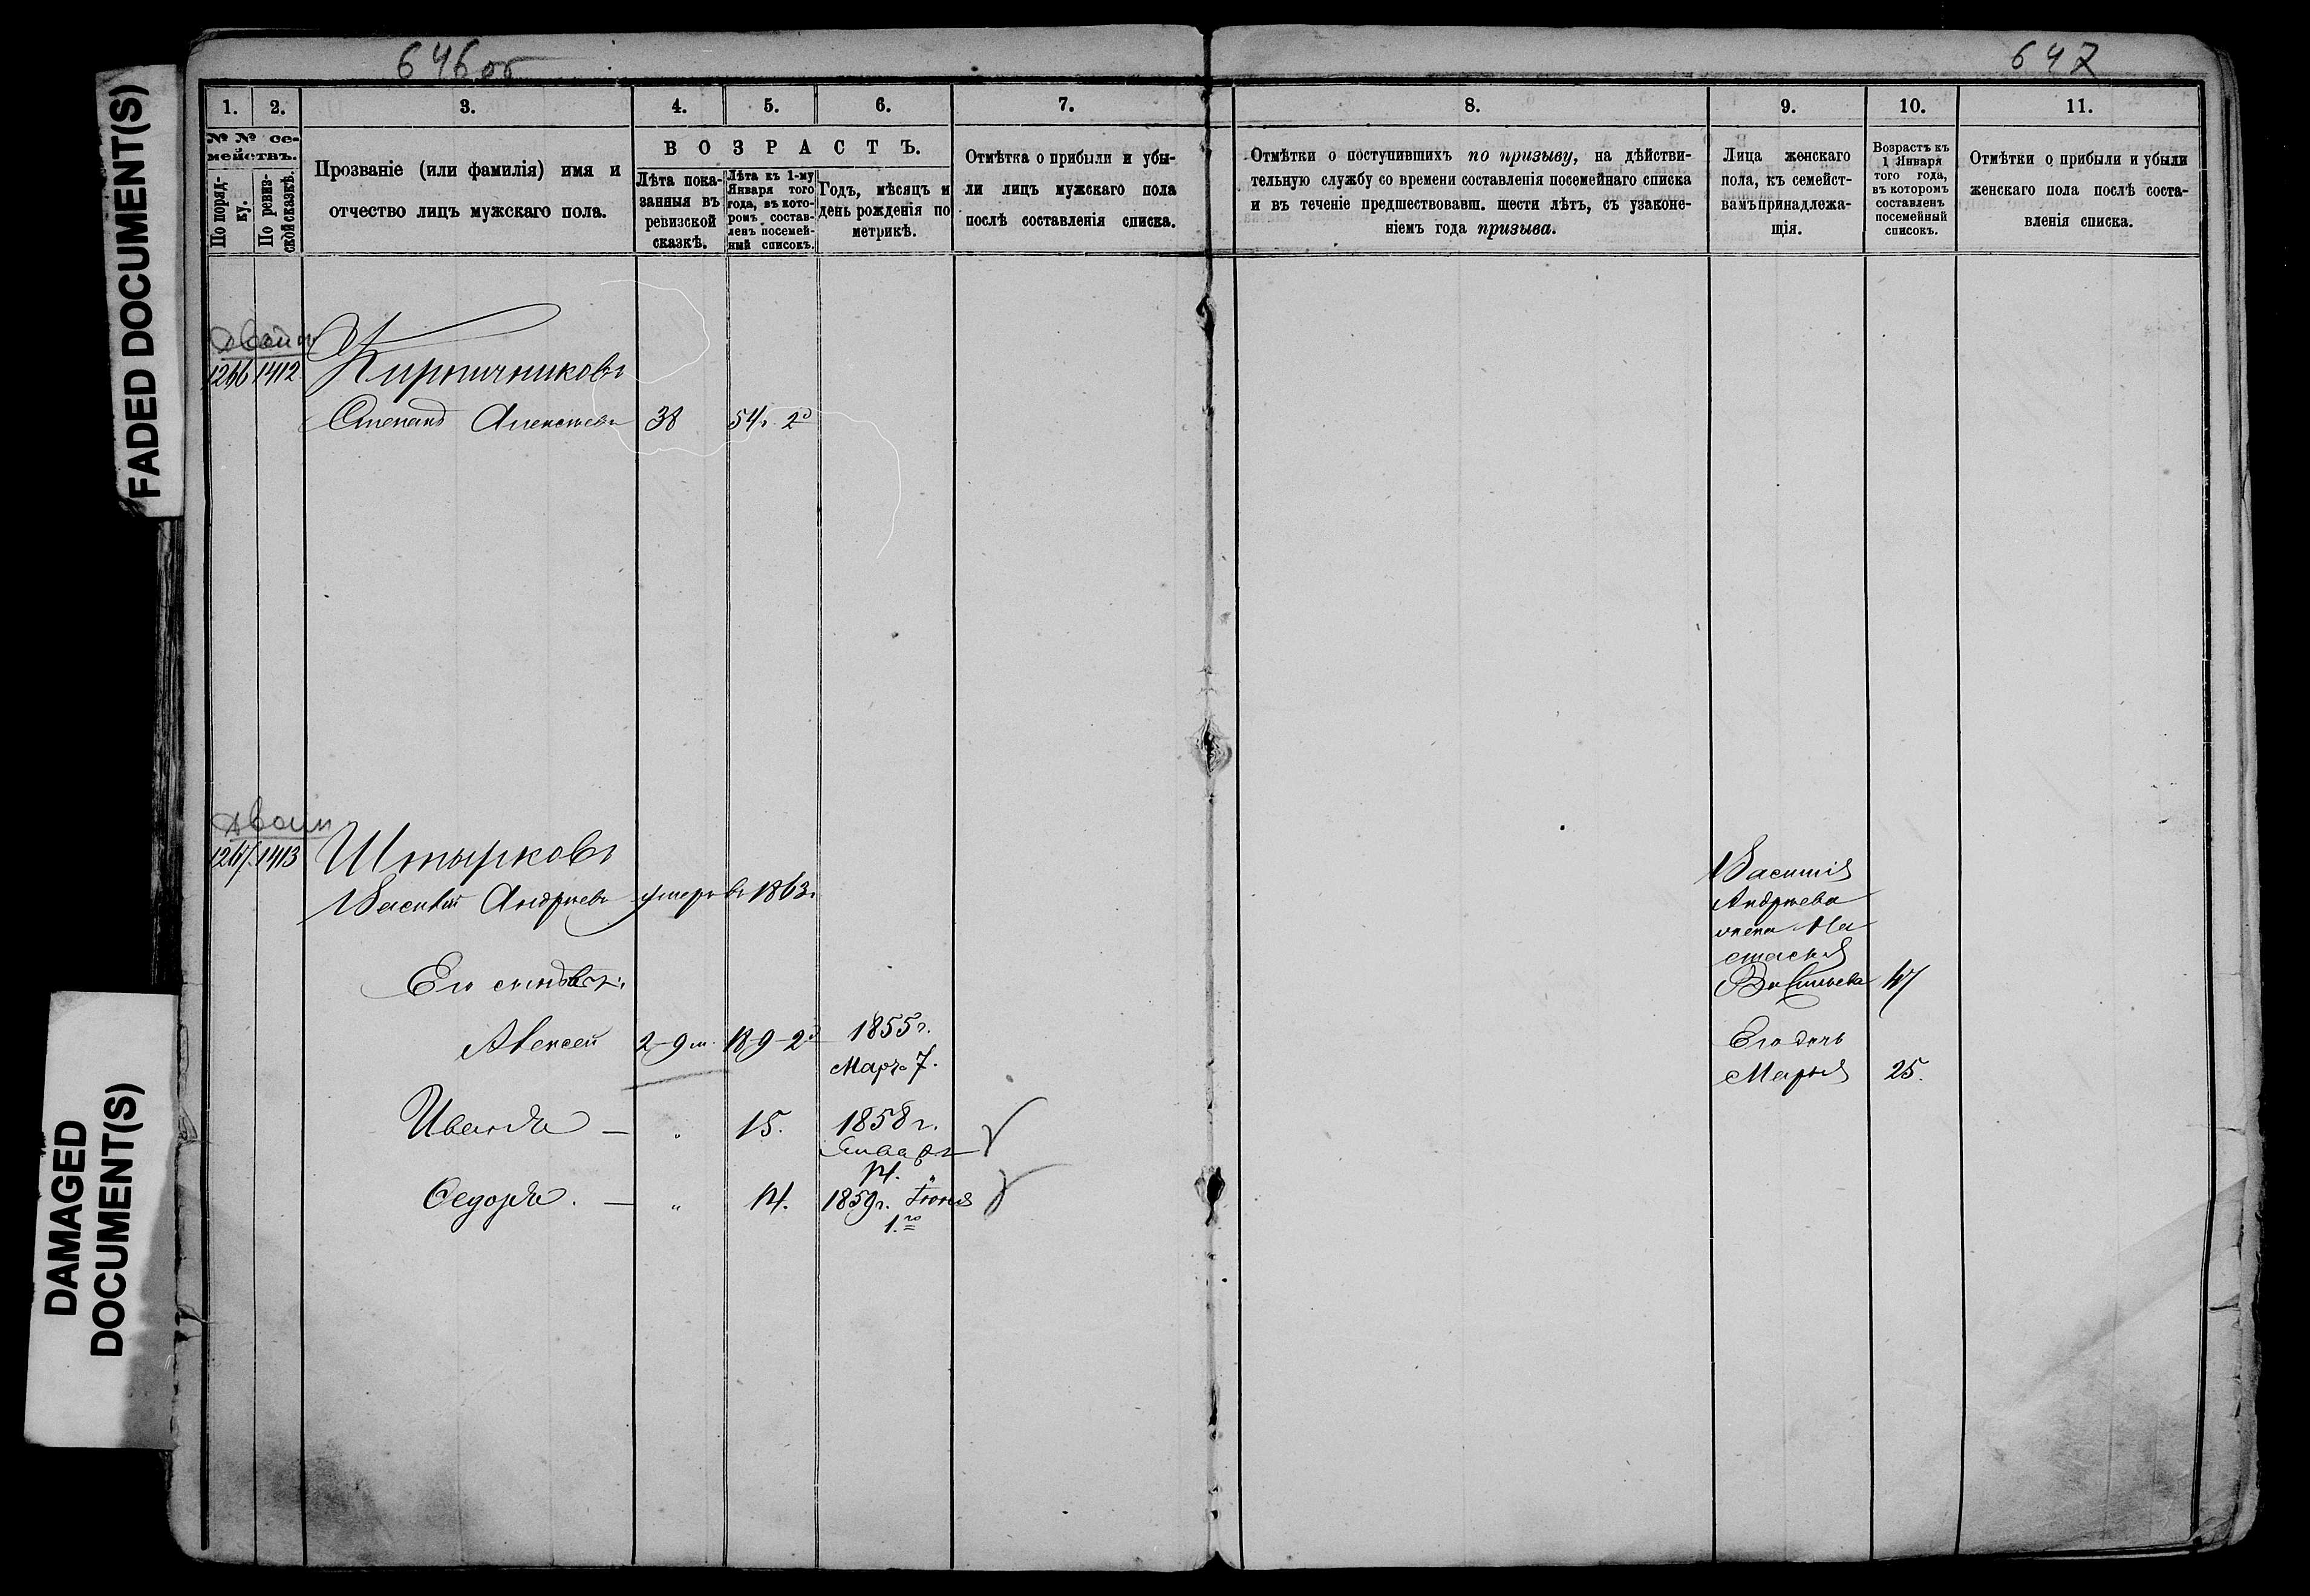 FADED DOCUMENT(S)
DAMAGED
DOCUMENT(S)
646об
647
1. 2. 3. 4. 5. 6. 7. 8. 9. 10. 11.
№ № се-
мействъ.
По поряд-
ку.
По ревиз-
ской сказкѣ.
Прозваніе (или фамилія) имя и
отчество лицъ мужскаго пола.
ВОЗРАСТЪ.
Лѣта пока-
занныя въ
ревизской
сказкѣ.
Лѣта къ 1-му
Января того
года, въ кото-
ромъ состав-
ленъ посемей-
ный списокъ.
Годъ, мѣсяцъ и
день рожденія по
метрикѣ.
Отмѣтка о прибыли и убы-
ли лицъ мужскаго пола
послѣ составленія списка.
Отмѣтки о поступившихъ по призыву, на дѣйстви-
тельную службу со времени составленія посемейнаго списка
и въ теченіе предшествовавш. шести лѣтъ, съ узаконе-
ніемъ года призыва.
Лица женскаго
пола, къ семейст-
вамъ принадлежа-
щія.
Возрастъ къ
1 Января
того года,
въ которомъ
составленъ
посемейный
списокъ.
Отмѣтки о прибыли и убыли
женскаго пола послѣ соста-
вленія списка.
1266 1412 Кирпичниковъ
Степанъ Алексѣевъ 38 54 г. 2
1267 1413 Штырковъ
Василій Андреевъ умеръ въ 1863 г.
Его сыновья:
Алексей 2-9 м. 18-9-2 1855 г.
Марта 7.
Иванъ — „ 15. 1858 г.
Января
14.
Федоръ. — „ 14. 1859 г. Іюня
1.го
Василія
Андреева
жена На
стасья
Васильева 47
Его дочь
Марья 25.